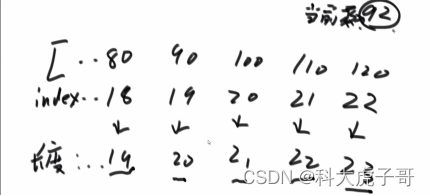 当前 92
[ .. 80 90 100 110 120
index .. 18 19 20 21 22
长度: .. 19 20 21 22 23
CSDN @科大虎子哥